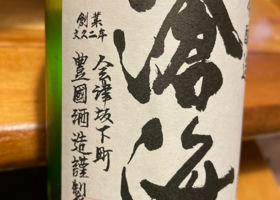 滄海
創業
文久二年
会津坂下町
豊國酒造謹製